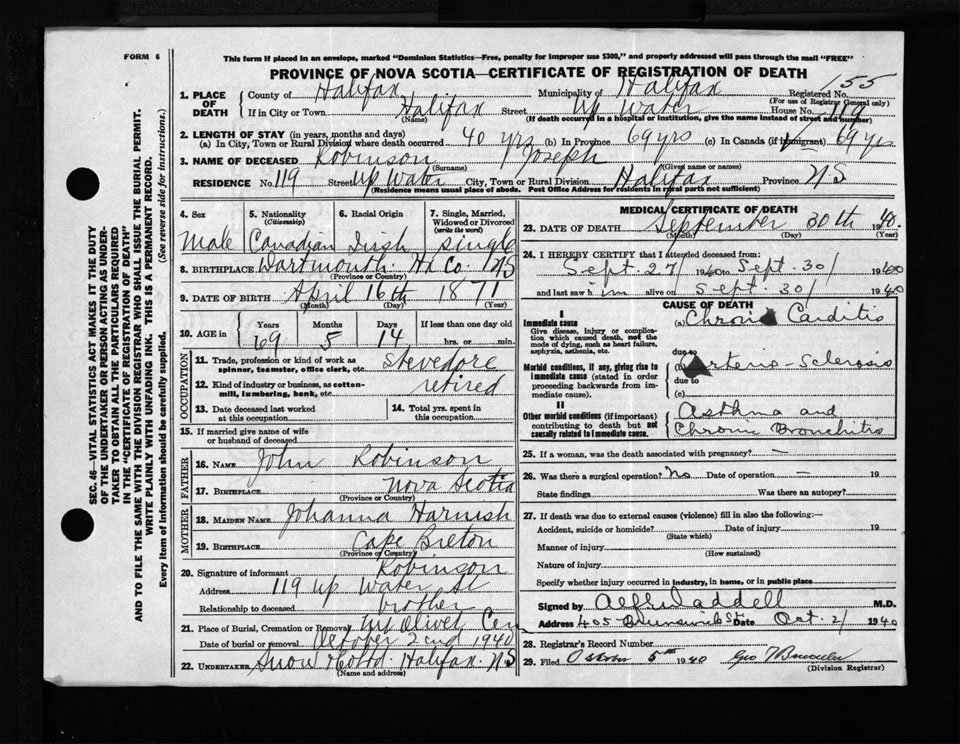 FORM 6
This form if placed in an envelope, marked "Dominion Statistics—Free, penalty for improper use $300," and properly addressed will pass through the mail "FREE"
PROVINCE OF NOVA SCOTIA—CERTIFICATE OF REGISTRATION OF DEATH
155
1. PLACE OF DEATH
County of Halifax Municipality of Halifax Registered No.
(For use of Registrar General only)
If in City or Town Halifax Street Up Water House No. 119
(Name) (If death occurred in a hospital or institution, give the name instead of street and number)
2. LENGTH OF STAY (in years, months and days)
(a) In City, Town or Rural Division where death occurred 40 yrs (b) In Province 69 yrs (c) In Canada (if immigrant) 69 yrs
3. NAME OF DECEASED Robinson Joseph
(Surname) (Given name or names)
RESIDENCE No. 119 Street Up Water City, Town or Rural Division Halifax Province NS
(Residence means usual place of abode. Post Office Address for residents in rural parts not sufficient)
4. Sex Male
5. Nationality (Citizenship) Canadian
6. Racial Origin Irish
7. Single, Married, Widowed or Divorced (write the word) single
8. BIRTHPLACE Dartmouth Hx Co. NS
(Province or Country)
9. DATE OF BIRTH April 16th 1871
(Month) (Day) (Year)
10. AGE in Years Months Days If less than one day old
69 5 14 hrs. or min.
OCCUPATION
11. Trade, profession or kind of work as spinner, teamster, office clerk, etc. Stevedore
12. Kind of industry or business, as cotton-mill, lumbering, bank, etc. retired
13. Date deceased last worked at this occupation
14. Total yrs. spent in this occupation
15. If married give name of wife or husband of deceased
FATHER
16. NAME John Robinson
17. BIRTHPLACE Nova Scotia
(Province or Country)
MOTHER
18. MAIDEN NAME Johanna Harnish
19. BIRTHPLACE Cape Breton
(Province or Country)
20. Signature of informant Robinson
Address 119 up Water St
Relationship to deceased brother
21. Place of Burial, Cremation or Removal Mt Olivet Cem
Date of burial or removal October 2nd 1940
22. UNDERTAKER Snow & Co Ltd. Halifax. NS
(Name and address)
MEDICAL CERTIFICATE OF DEATH
23. DATE OF DEATH September 30th 1940.
(Month) (Day) (Year)
24. I HEREBY CERTIFY that I attended deceased from
Sept. 27/ 1940 to Sept. 30/ 1940
and last saw him alive on Sept. 30/ 1940
CAUSE OF DEATH
I
Immediate cause
Give disease, injury or complication which caused death, not the mode of dying, such as heart failure, asphyxia, asthenia, etc.
(a) Chronic Carditis
due to
Morbid conditions, if any, giving rise to immediate cause (stated in order proceeding backwards from immediate cause).
Arterio-Sclerosis
due to
(c)
II
Other morbid conditions (if important) contributing to death but not causally related to immediate cause.
Asthma and
Chronic Bronchitis
25. If a woman, was the death associated with pregnancy? —
26. Was there a surgical operation? No Date of operation — 19
State findings Was there an autopsy?
27. If death was due to external causes (violence) fill in also the following:—
Accident, suicide or homicide? Date of injury 19
(State which)
Manner of injury
(How sustained)
Nature of injury
Specify whether injury occurred in industry, in home, or in public place
Signed by Alf. Waddell M.D.
Address 405 Brunswick St Date Oct. 2/ 1940
28. Registrar's Record Number
29. Filed 5 1940 Geo
(Division Registrar)
SEC. 46—VITAL STATISTICS ACT MAKES IT THE DUTY
OF THE UNDERTAKER OR PERSON ACTING AS UNDER-
TAKER TO OBTAIN ALL THE PARTICULARS REQUIRED
IN THE "CERTIFICATE OF REGISTRATION OF DEATH"
AND TO FILE THE SAME WITH THE DIVISION REGISTRAR WHO SHALL ISSUE THE BURIAL PERMIT.
WRITE PLAINLY WITH UNFADING INK. THIS IS A PERMANENT RECORD.
Every item of information should be carefully supplied. (See reverse side for instructions.)